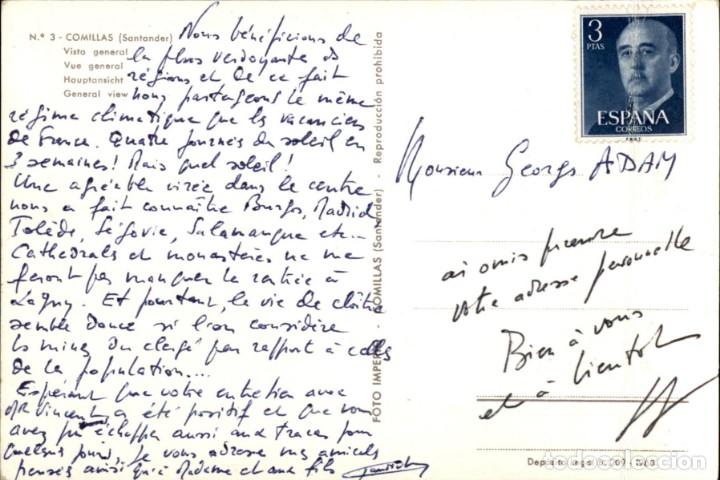 N.º 3 - COMILLAS (Santander)
Vista general
Vue general
Hauptansicht
General view
Nous bénéficions de
la plus verdoyante des
régions et de ce fait
nous partageons le même
régime climatique que les vacanciers
de France. Quatre journées de soleil en
3 semaines! Mais quel soleil!
Une agréable virée dans le centre
nous a fait connaître Burgos, Madrid
Tolède, Ségovie, Salamanque etc...
Cathédrales et monastères ne me
feront pas manquer la rentrée à
Lagny. Et pourtant, la vie de cloître
semble douce si l'on considère
les mines du clergé par rapport à celles
de la population...
Espérant que votre entretien avec
Mr Vincent a été positif et que vous
avez pu échapper aussi aux tracas pour
quelques jours, je vous adresse mes amicales
pensées ainsi qu'à Madame et aux fils
FOTO IMPE
COMILLAS (Santander) - Reproducción prohibida
3
PTAS
ESPAÑA
CORREOS
Monsieur Georges ADAM
ai omis prendre
votre adresse personnelle
Bien à vous
et à bientôt
Deposito Legal
todocoleccion